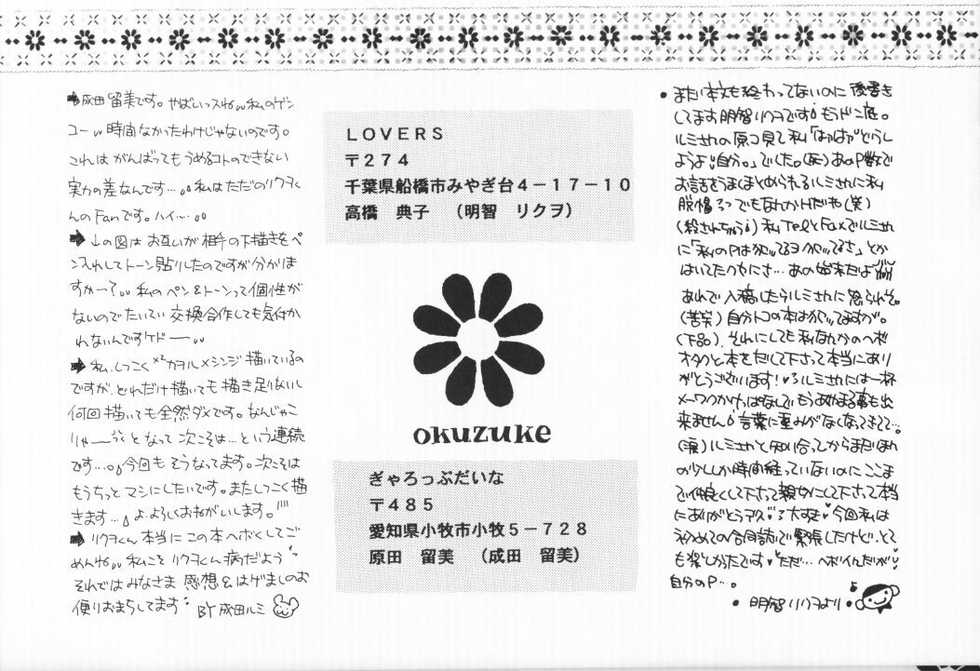 成田留美です。やばいっスねww私のゲン
コーw 時間なかったわけじゃないのです。
これは がんばってもうめるコトのできない
実力の差なんです…。私はただのリクヲく
んのFanです。ハイ…。
↓の図は お互いが相手の下描きをペ
ン入れしてトーン貼りしたのですが分かりま
すかー?。私のペン&トーンって個性が
ないのでたいてい 交換合作しても気付か
れないんですケドー
私、しつこくカヲル×シンジ描いているの
ですが、どれだけ描いても描き足りないし
何回描いても全然ダメです。なんじゃこ
りゃー となって 次こそは…という連続
です…。今回も そうなってます。次こそは
もうちっと マシにしたいです。またしつこく描
きます… よろしくおねがいします。
リクヲくん本当に この本ヘボくしてご
めんね。私こそ リクヲくん病だよう
それではみなさま 感想&はげましのお
便りおまちしてます BY 成田ルミ
LOVERS
〒274
千葉県船橋市みやぎ台4-17-10
高橋 典子 (明智 リクヲ)
okuzuke
ぎゃろっぷだいな
〒485
愛知県小牧市小牧5-728
原田 留美 (成田 留美)
まだ本文も終わってないのに後書き
してます明智リクヲです! もうドン底。
ルミさんの原コ見て私「はあはあどうし
ようよ自分。」でした。(笑) あのP数で
お話をうまくまとめられるルミさんに私
脱帽 でもなんかHだね(笑)
私TelとFaxでルミさん
に「私のPは
あの始末だよ
あれで入稿したらルミさんに怒られそ。
(苦笑) 自分トコの本は
(下品)。それにしても私なんかのヘボ
オタクと本をだして下さって本当にあり
がとうございます! ルミさんには一杯
メーワクかけっぱなしでもうあやまる事も出
来ません 言葉に重みがなくなってきてて…。
(涙) ルミさんと知り合ってからまだほん
の少ししか時間経っていないのにここま
で仲良くして下さって親切にして下さって本当
にありがとうデス 大好き 今回私は
初めての合同誌で緊張したけど、とて
も楽しかったです ただ… ヘボイんだが
自分のP…。
明智リクヲより